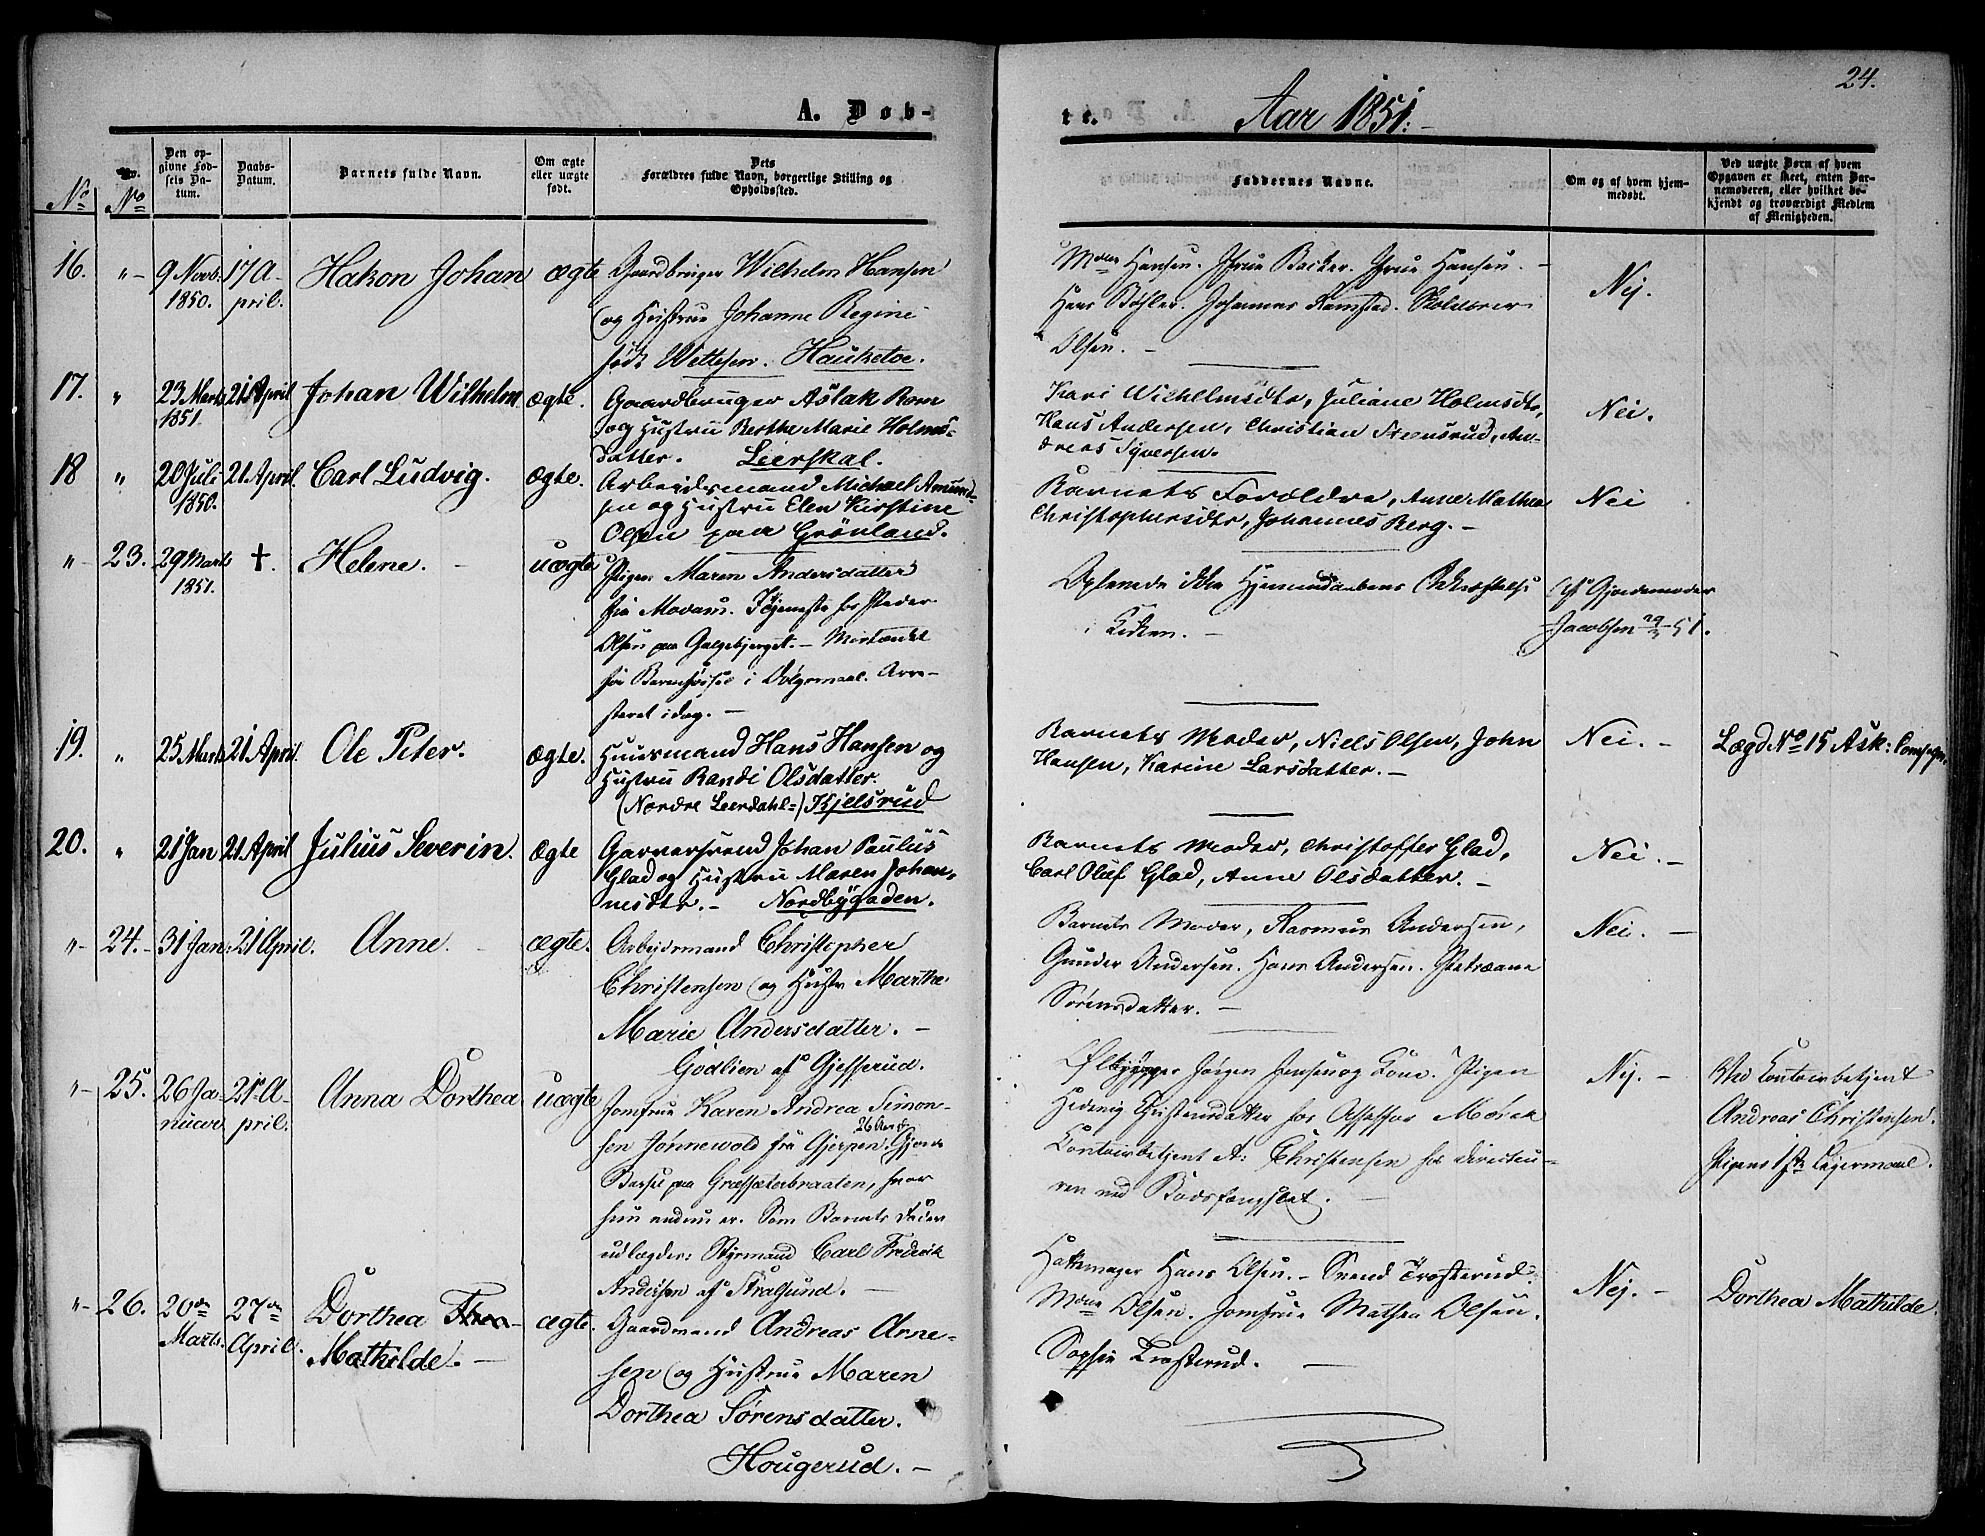 24.
A. Døb-
te.
Aar 1851.
No
No
Den op-
givne Fød-
sels Da-
tum.
Daabs-
Datum.
Barnets fulde Navn.
Om ægte
eller uægte
født.
Dets
Forældres fulde Navn, borgerlige Stilling og
Opholdssted.
Faddernes Navne.
Om og af hvem hjem-
medøbt.
Ved uægte Børn af hvem
Opgaven er skeet, enten Bar-
nemoderen, eller hvilket be-
kjendt og troværdigt Medlem
af Menigheden.
16.
" -
9 Novb.
1850.
17 A-
pril.
Hakon Johan
ægte
Gaardbruger Wilhelm Hansen
og Hustrue Johanne Regine
født Wettesen. Hauketoe.
Mdme Hansen. Frue Backer. Frue Hansen. -
Hans Bøhler. Johannes Ramstad. Skolelærer
Olsen. -
Nej.
17.
"
23 Marts
1851.
21 April
Johan Wilhelm
ægte.
Gaardbruger Aslak Rom
og Hustru Berthe Marie Holms-
datter. Leerskal.
Kari Wichelmsdtr, Juliane Holmsdtr,
Hans Andersen, Christian Stensrud, An-
dreas Syversen.
Nei.
18
"
20 Juli
1850.
21 April.
Carl Ludvig.
ægte.
Arbeidsmand Michael Amund-
sen og Hustru Elen Kirstine
Olsen paa Grönland.
Barnets Forældre, Anne Mathea
Christophersdtr, Johannes Berg. -
Nei
" -
23.
29 Marts
1851.
†.
Helene. -
uægte
Pigen Maren Andersdatter
fra Modum. Tjeneste hos Peder
Olsen paa Galgebjerget. - Mistænkt
for Barnefødsel i Dølgsmaal. Arre-
steret idag. -
Oplevede ikke Hjemmedaabens Stadfæstelse
i Kirken. -
Af Gjordemoder
Jacobsen 29/3 51.
19.
"
25 Marts
21 April.
Ole Peter.
ægte.
Huusmand Hans Hansen og
Hustru Randi Olsdatter.
(Nordre Leerdahl=) Kjelsrud
Barnets Moder, Niels Olsen, John
Hansen, Karine Larsdatter. -
Nei. -
Lægd No 15 Ask: Comp
20.
"
21 Jan
21 April
Julius Severin.
ægte
Garversvend Johan Paulus
Glad og Hustru Maren Johan-
nesdtr. - Nordbygaden.
Barnets Moder, Christoffer Glad,
Carl Oluf Glad, Anne Olsdatter. -
Nei. -
" -
24. -
31 Jan.
21 April.
Anne. -
ægte.
Arbeidsmand Christopher
Christensen og Hustr Marthe
Marie Andersdatter. -
Godlien af Gjesserud.
Barnets Moder, Rasmus Andersen,
Gunder Andersen. Hans Andersen. Petreane
Sørensdatter. -
Nei. -
" -
25.
26 Ja-
nuar
21 A-
pril.
Anna Dorthea
uægte
Jomfrue Karen Andrea Simon-
sen Jønnevold fra Gjerpen. Gjorde
Barsel paa Græssæterbraaten, hvor
hun endnu er. Som Barnets Fader
udlægdes: Styrmand Carl Frederik
Andersen af Stralsund. -
Ølbrygger Jørgen Jensen og Kone. Pigen
Hedevig Christensdatter hos Assessor Mørck
Contoirbetjent A: Christensen hos Directeu-
ren ved Bodsfængslet. -
Nej. -
Ved Contoirbetjent
Andreas Christensen.
Pigens 1ste Leiermaal.
" -
26.
20de
Marts.
27de
April.
Dorthea Thea -
Mathilde. -
ægte.
Gaardmand Andreas Arne-
sen og Hustrue Maren
Dorthea Sørensdatter.
Hougerud. -
Hattemager Hans Olsen. - Svend Trosterud.
Mdme Olsen. Jomfrue Mathea Olsen.
Sophie Trosterud. -
Nej. -
Dorthea Mathilde.